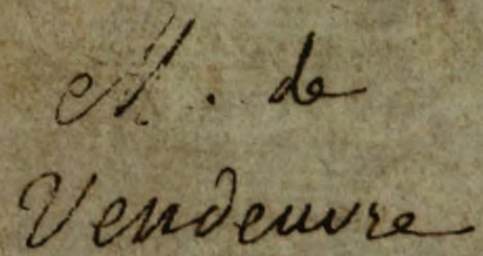 M. de
Vendeuvre